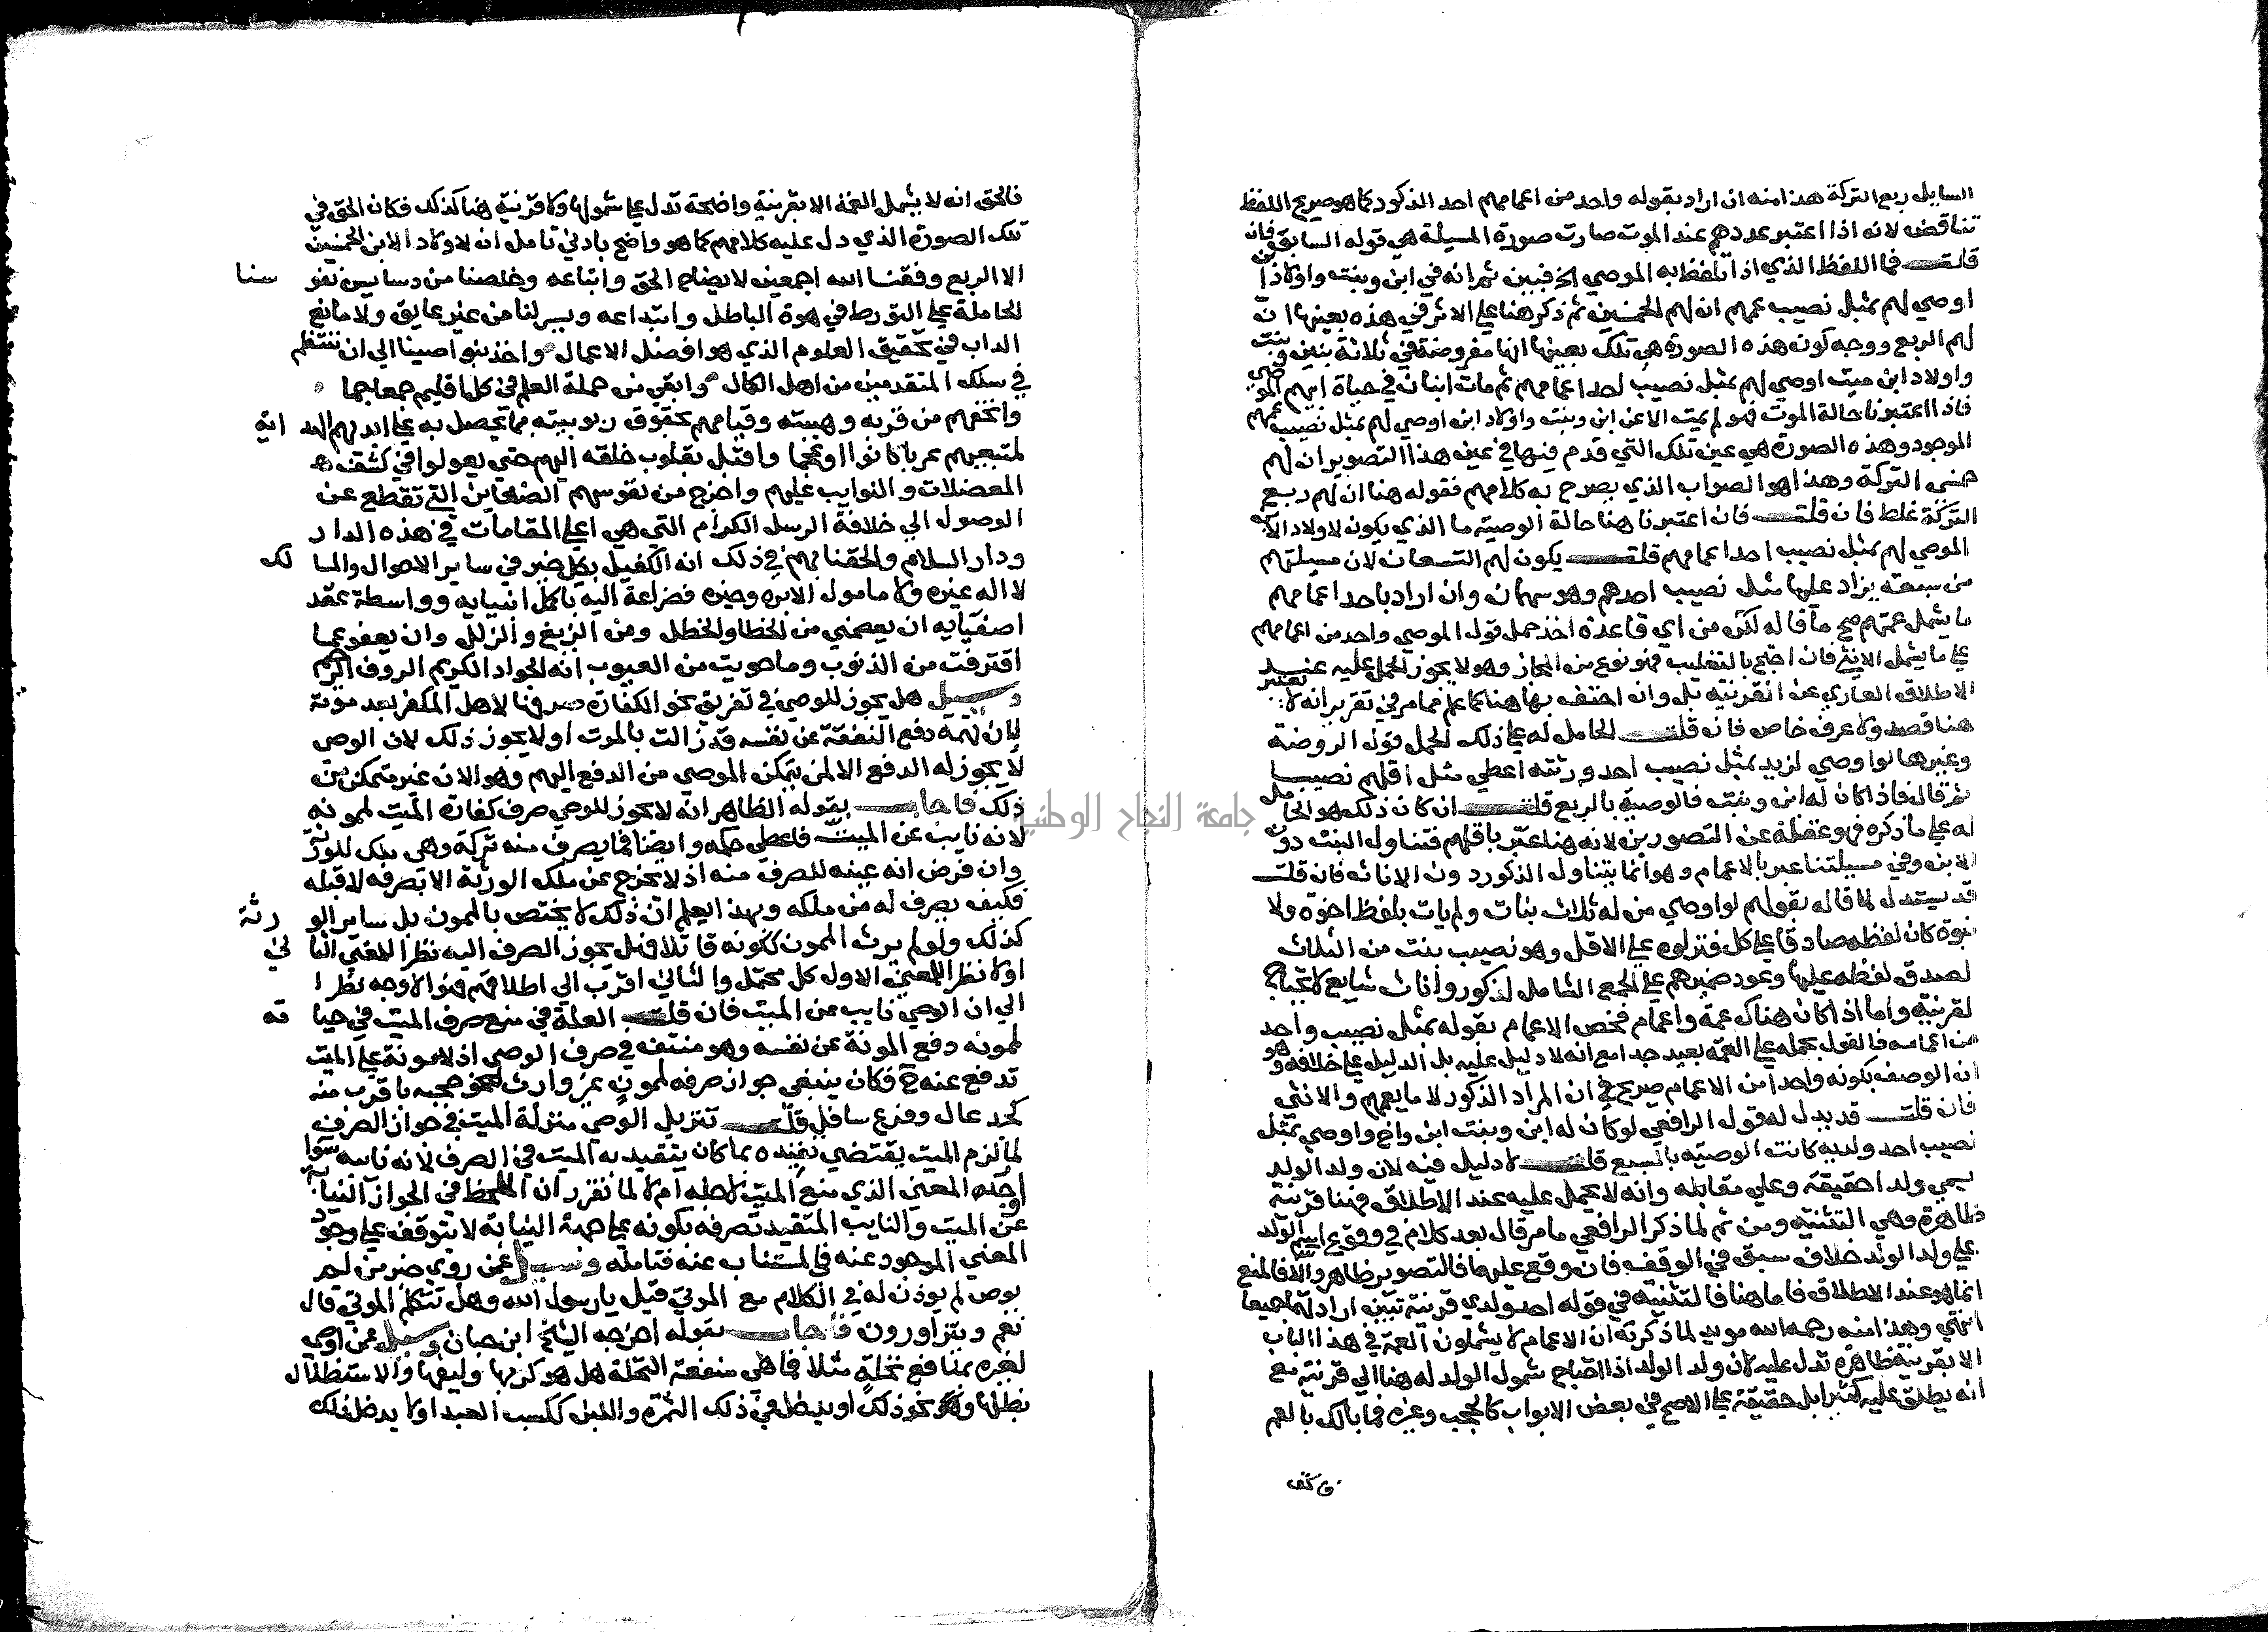 السايل ربع التركة هذا منه ان اراد بقوله واحد من اعمامهم احد الذكور كما هو صريح اللفظ
تناقض لانه اذا اعتبر عددهم عند الموت صارت صورة المسيلة هي قوله السابق فان
قلت فما اللفظ الذي اذا تلفظ به الموصي ثم انه في ابن وبنت واولاد ابن
اوصي لهم بمثل نصيب عمهم ان لهم الخمسين ثم ذكر هنا علي الاثر في هذه بعينها ان
لهم الربع ووجه كون هذه الصورة هي تلك بعينها انها مفروضة في ثلاثة بنين وبنت
واولاد ابن ميت اوصي لهم بمثل نصيب احد اعمامهم ثم مات ابنان في حياة ابيهم الموصي
فاذا اعتبرنا حالة الموت فهو لم يمت الا عن ابن وبنت واولاد ابن اوصي لهم بمثل نصيب عمهم
الموجود وهذه الصورة هي عين تلك التي قدم فيها في عين هذا التصوير ان لهم
خمسي التركة وهذا هو الصواب الذي يصرح به كلامهم فقوله هنا ان لهم ربع
التركة غلط فان قلت فان اعتبرنا هنا حالة الوصية ما الذي يكون لاولاد الابن
الموصي لهم بمثل نصيب احد اعمامهم قلت يكون لهم التسعان لان مسيلتهم
من سبعة يزاد عليها مثل نصيب احدهم وهو سهمان وان اراد باحد اعمامهم
ما يشمل عمتهم صح ما قاله لكن من اي قاعدة اخذ حمل قول الموصي واحد من اعمامهم
علي ما يشمل الانثي فان احتج بالتغليب فهو نوع من المجاز وهو لا يجوز الحمل عليه عند
الاطلاق العاري عن القرنية بل وان احتف بها هنا كما علم مما مر في تقرير انه لا يعتبر
هنا قصد ولا عرف خاص فان قلت الحامل له علي ذلك الحمل قول الروضة
وغيرها لو اوصي لزيد بمثل نصيب احد ورثته اعطي مثل اقلهم نصيبا
ثم قال فاذا كان له ابن وبنت فالوصية بالربع قلت ان كان ذلك هو الحامل
له علي ما ذكره فهو غفلة عن التصورين لانه هنا عبر باقلهم فتناول البنت دون
الابن وفي مسيلتنا عبر بالاعمام وهو انما يتناول الذكور دون الاناث فان قلت
قد يستدل لما قاله بقولهم لو اوصي من له ثلاث بنات ولم يات بلفظ اخوة ولا
بنوة كان لفظه صادقا علي كل فنزلوه علي الاقل وهو نصيب بنت من الثلاث
لصدق لفظه عليها وعود ضميرهم علي الجمع الشامل لذكور واناث شايع لا يحتاج
لقرنية واما اذا كان هناك عمة واعمام فخص الاعمام بقوله بمثل نصيب واحد
من اعمامه فالقول بحمله علي العمة بعيد جدا مع انه لا دليل عليه بل الدليل علي خلافه وهو
ان الوصف بكونه واحدا من الاعمام صريح في ان المراد الذكور لا ما يعمهم والانثي
فان قلت قد يدل له قول الرافعي لو كان له ابن وبنت ابن واخ واوصي بمثل
نصيب احد ولديه كانت الوصية بالسبع قلت لا دليل فيه لان ولد الولد
يسمي ولدا حقيقة وعلي مقابله وانه لا يحمل عليه عند الاطلاق فهنا قرنية
ظاهرة وهي التثنية ومن ثم لما ذكر الرافعي ما مر قال بعد كلام في وقوع اسم الولد
علي ولد الولد خلاف سبق في الوقف فان وقع عليهما فالتصوير ظاهر والا فالمنع
انما هو عند الاطلاق فاما هنا فالتثنية في قوله احد ولدي قرنية تبين ارادتهما جميعا
انتهي وهذا منه رحمه الله مويد لما ذكرته ان الاعمام لا يشملون العمة في هذا الباب
الا بقرنية ظاهرة تدل عليه لان ولد الولد اذا احتاج شمول الولد له هنا الي قرنية مع
انه يطلق عليه كثيرا بل حقيقة علي الاصح في بعض الابواب كالحجب وغيره فما بالك بالعم
فالحق انه لا يشمل العمة الا بقرنية واضحة تدل علي شمولها ولا قرنية هنا كذلك فكان الحق في
تلك الصورة الذي دل عليه كلامهم كما هو واضح بادني تامل ان لاولاد الابن الخمسين
الا الربع وفقنا الله اجمعين لايضاح الحق واتباعه وخلصنا من دسايس نفوسنا
الحاملة علي التورط في هوة الباطل وابتداعه ويسر لنا من غير عايق ولا مانع
الداب في تحقيق العلوم الذي هو افضل الاعمال واخذ بنواصينا الي ان ننتظم
في سلك المتقدمين من اهل الكمال وابقي من حملة العلم في كل اقليم جمعا جما
واتحفهم من قربه وهيبته وقيامهم بحقوق ربوبيته مما تحصل به علي ايديهم الهداية
لمتبعيهم عربا كانوا او عجما واقبل بقلوب خلقه اليهم حتي يعولوا في كشف
المعضلات والنوايب عليهم واخرج من نفوسهم الضغاين التي تقطع عن
الوصول الي خلافة الرسل الكرام التي هي اعلي المقامات في هذه الدار
ودار السلام والحقنا بهم في ذلك انه الكفيل بكل خير في ساير الاحوال والمسالك
لا اله غيره ولا مامول الا بره وخيره ضراعة اليه باكمل انبيايه وواسطة عقد
اصفيايه ان يعصمني من الخطا والخطل ومن الزيغ والزلل وان يعفو عما
اقترفت من الذنوب وما حويت من العيوب انه الجواد الكريم الروف الرحيم
وسيل هل يجوز للوصي في تفريق نحو الكفارة صرفها لاهل المكفر بعد موته
لان تهمة دفع النفقة عن نفسه قد زالت بالموت او لا يجوز ذلك لان الوصي
لا يجوز له الدفع الا لمن يتمكن الموصي من الدفع اليهم وهو الان غير متمكن من
ذلك فاجاب بقوله الظاهر انه لا يجوز للوصي صرف كفارة الميت لممونه
لانه نايب عن الميت فاعطي حكمه وايضا فما يصرف منه تركة وهي ملك للورثة
وان فرض انه عينه للصرف منه اذ لا يخرج عن ملك الورثة الا بتصرفه لا قبله
فكيف يصرف له من ملكه وبهذا يعلم ان ذلك لا يختص بالممون بل ساير الورثة
كذلك ولو لم يرث الممون لكونه قاتلا فهل يجوز الصرف اليه نظرا للمعني الثاني
او لا نظرا للمعني الاول كل محتمل والثاني اقرب الي اطلاقهم فهو الاوجه نظرا
الي ان الوصي نايب عن الميت فان قلت العلة في منع صرف الميت في حياته
لممونه دفع المونة عن نفسه وهو منتف في صرف الوصي اذ لا مونة علي الميت
تدفع عنه ح فكان ينبغي جواز صرفه لممون غير وارث لنحو حجبه باقرب منه
كجد عال وفرع سافل قلت تنزيل الوصي منزلة الميت في جواز الصرف
لما لزم الميت يقتضي تقييده بما كان يتقيد به الميت في الصرف لانه نايبه سوا
اوجد المعني الذي منع الميت لاجله ام لا لما تقرر ان الملحظ في الجواز النيابة
عن الميت والنايب المتقيد تصرفه بكونه علي جهة النيابة لا يتوقف علي وجود
المعني الموجود عنه في المستناب عنه فتامله وسيل عمن روي خبر من لم
يوص لم يوذن له في الكلام مع الموتي قيل يا رسول الله وهل تتكلم الموتي قال
نعم ويتزاورون فاجاب بقوله اخرجه الشيخ ابن حبان وسيل عمن اوصي
لغيره بمنافع نخلة مثلا فما هي منفعة النخلة هل هو كربها وليفها والاستظلال
بظلها ونحو ذلك او يدخل في ذلك الثمرة واللبن ككسب العبد او لا يدخل ذلك
جامعة النجاح الوطنية